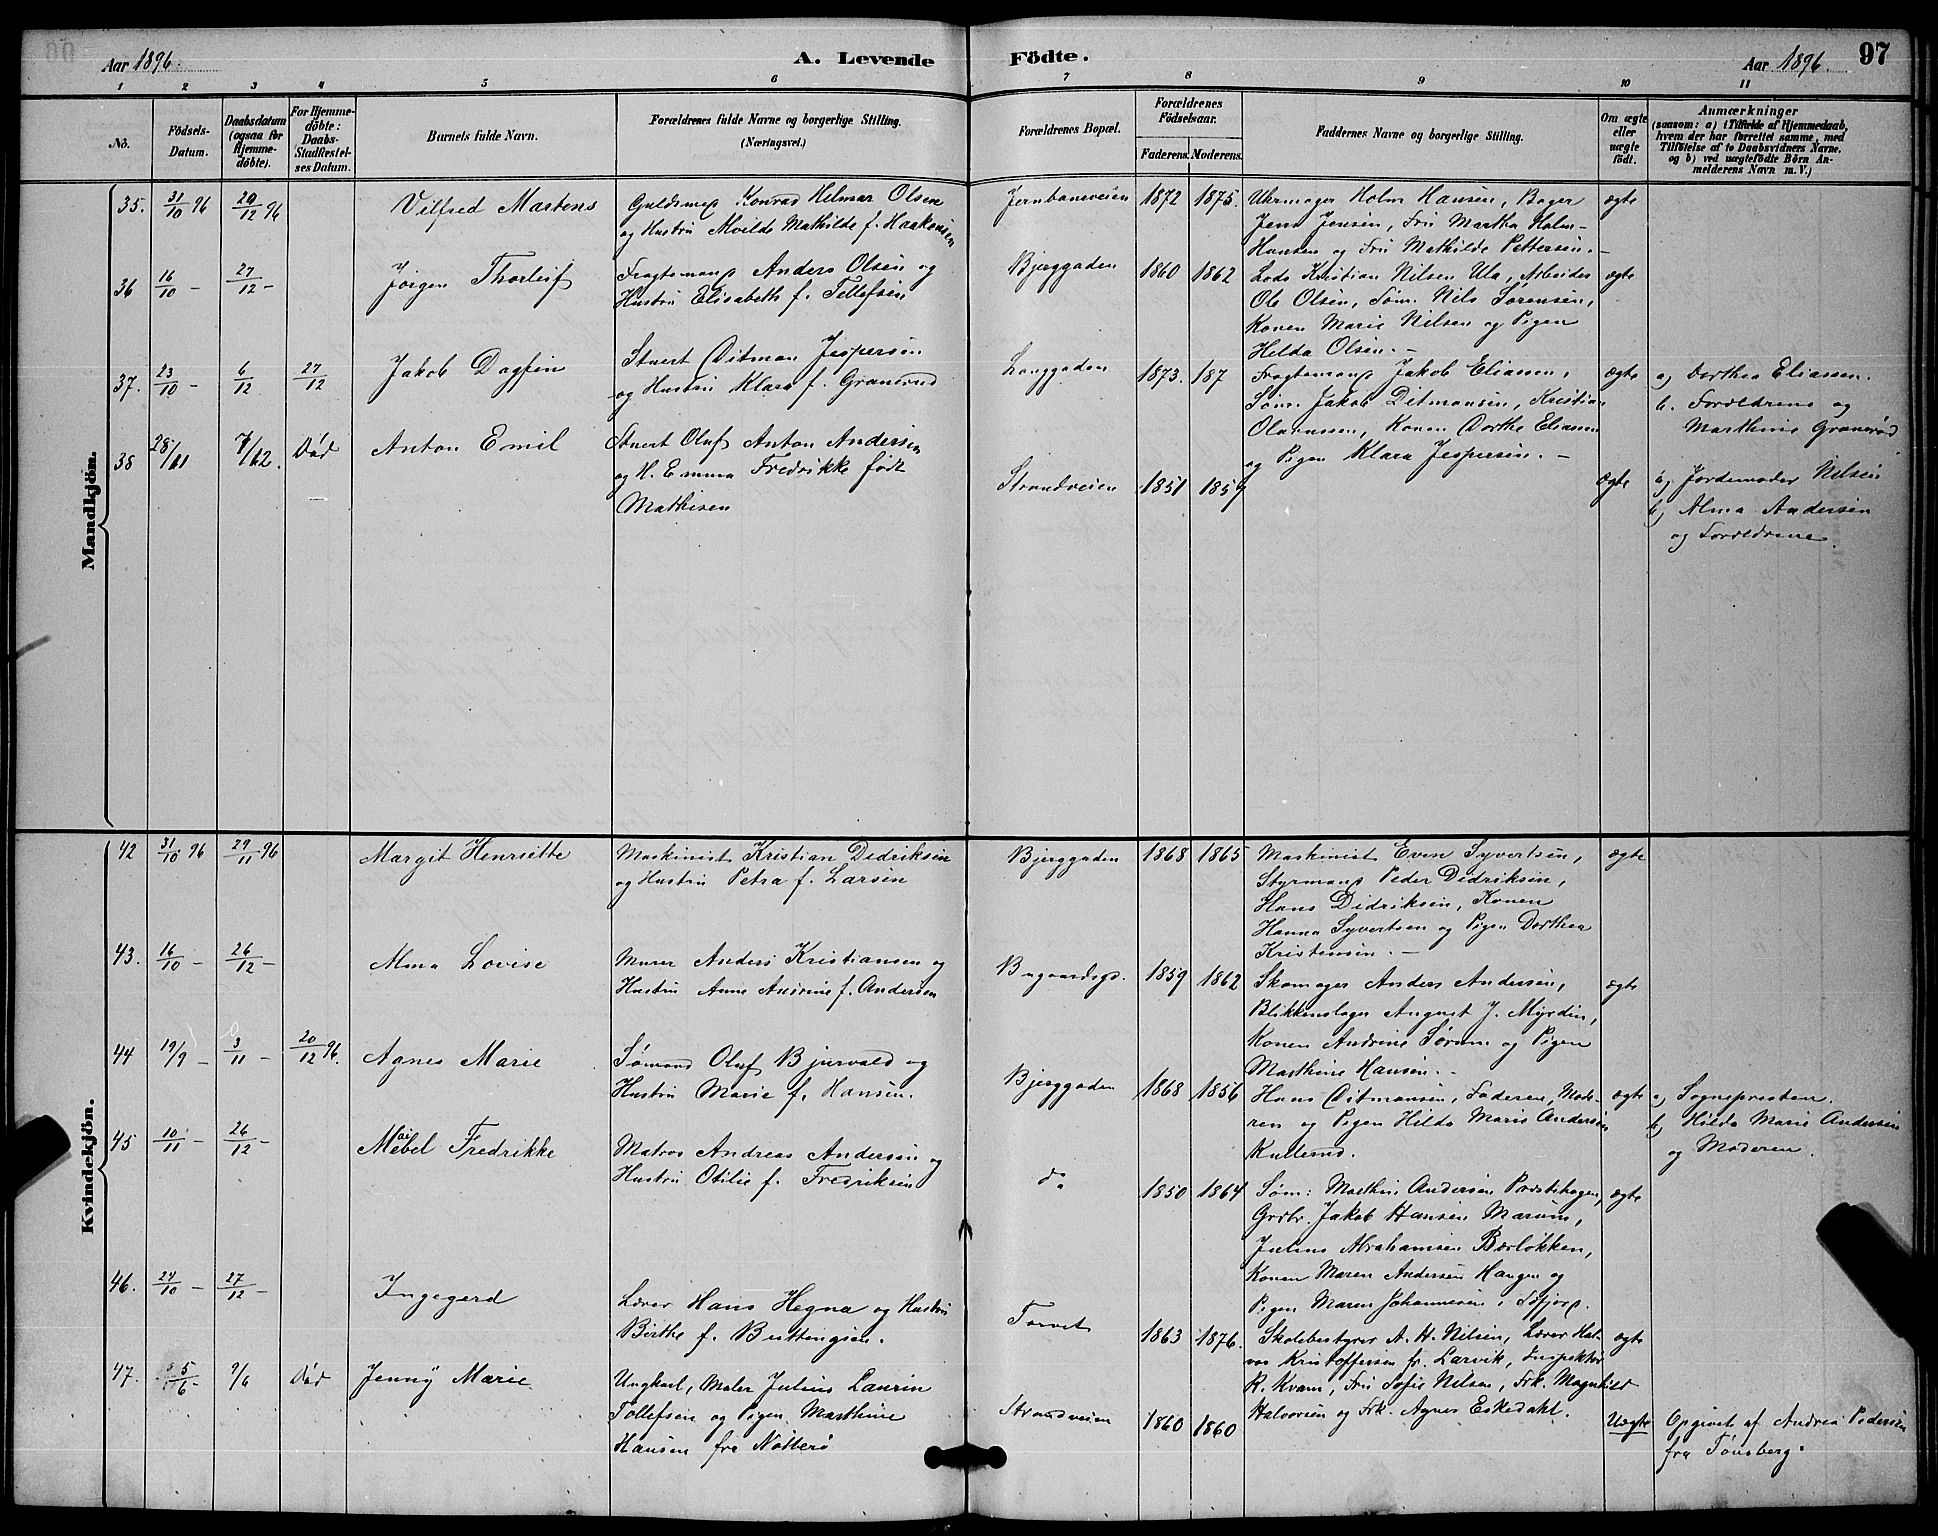 Aar 1896. A. Levende Födte. Aar 1896. 97
1 2 3 4 5 6 7 8 9 10 11
No. Födsels-Datum. Daabsdatum (ogsaa for Hjemmedöbte). For Hjemmedöbte: Daabs-Stadfæstelses Datum. Barnets fulde Navn. Forældrenes fulde Navne og borgerlige Stilling. (Næringsvei.) Forældrenes Bopæl. Forældrenes Födselsaar. Faderens. Moderens. Faddernes Navne og borgerlige Stilling. Om ægte eller uægte födt. Anmærkninger (saasom: a) i Tilfælde af Hjemmedaab, hvem der har forrettet samme, med Tilföielse af to Daabsvidners Navne, og b) ved uægtefödte Börn Anmelderens Navn m. V.)
Mandkjön.
35. 31/10 96 20/12 96 Vilfred Martens
Guldsmed Konrad Helmar Olsen
og Hustru Alvilde Mathilde f. Haakonsen
Jernbaneveien 1872 1875.
Uhrmager Holm Hansen, Bager
Jens Jensen, Fru Martha Holm-
Hansen og Fru Mathilde Pettersen.-
ægte
36 16/10 - 27/12 - Jörgen Thorleif
Fragtemand Anders Olsen og
Hustru Elisabeth f. Tellefsen
Bjerggaden 1860 1862
Lods Kristian Nilsen Ula, Arbeider
Ole Olsen, Söm. Nils Sörensen,
Konen Marie Nilsen og Pigen
Helda Olsen.-
ægte
37. 23/10 - 6/12 27/12 Jakob Dagfin
Stuert Ditman Jespersen
og Hustru Klara f. Granerud
Langgaden 1873. 187
Fragtemand Jakob Eliassen,
Söm. Jakob Ditmansen, Kristian
Olavussen, Konen Dorthe Eliassen
og Pigen Klara Jespersen.-
ægte
a) Dorthea Eliassen.
b. Forældrene og
Marthine Granerød
38 28/11 7/12. Död Anton Emil
Stuert Oluf Anton Andersen
og H. Emma Fredrikke født
Mathisen
Strandveien 1851 1859
Ægte
a) Jordemoder Nilsen
b) Alma Andersen
og Forældrene.
Kvindekjön.
42 31/10 96 29/11 96 Margit Henriette
Maskinist Kristian Didriksen
og Hustru Petra f. Larsen
Bjerggaden 1868 1865
Maskinist Even Syvertsen,
Styrmand Peder Didriksen,
Hans Didriksen, Konen
Hanna Syvertsen og Pigen Dorthea
Kristensen.-
ægte
43. 16/10 - 26/12 - Alma Lovise
Murer Anders Kristiansen og
Hustru Anne Andrine f. Andersen
Bugaardsgd. 1859 1862
Skomager Anders Andersen,
Blikkenslager August J. Myrdin,
Konen Andrine Sörum og Pigen
Marthine Hansen.-
ægte
44 19/9 - 3/11 - 20/12 96. Agnes Marie
Sömand Oluf Bjurvald og
Hustru Marie f. Hansen.
Bjerggaden 1868 1856
Hans Ditmansen, Faderen, Mode-
ren og Pigen Hilda Marie Andersen
Kullerud.
ægte
a) Sognepresten.
b) Hilda Marie Andersen
og Moderen.
45 10/11 - 26/12 - Mabel Fredrikke
Matros Andreas Andersen og
Hustru Otilie f. Fredriksen
do 1850 1864
Söm: Mathis Andersen Præstehagen,
Grdbr. Jakob Hansen Marum,
Julius Abrahamsen Bærløkken,
Konen Maren Andersen Haugen og
Pigen Maren Johannesen, Sefjord.
ægte
46. 24/10 - 27/12 - Ingegerd
Lærer Hans Hegna og Hustru
Birthe f. Buttingsen.
Torvet 1863 1876.
Skolebestyrer A. H. Nilsen, Lærer Hal-
vor Kristoffersen fr. Larvik, Inspektör
R. Kvam, Fru Sofie Nilsen, Frk. Magnhild
Halvorsen og Frk. Agnes Eskedahl.
ægte
47. 5/6 - 9/6 Död Jenny Marie
Ungkarl, Maler Julius Laurin
Tollefsen og Pigen Marthine
Hansen fra Nötterö
Strandveien 1860 1860
Uægte
Opgivet af Andrea Pedersen
fra Tönsberg.